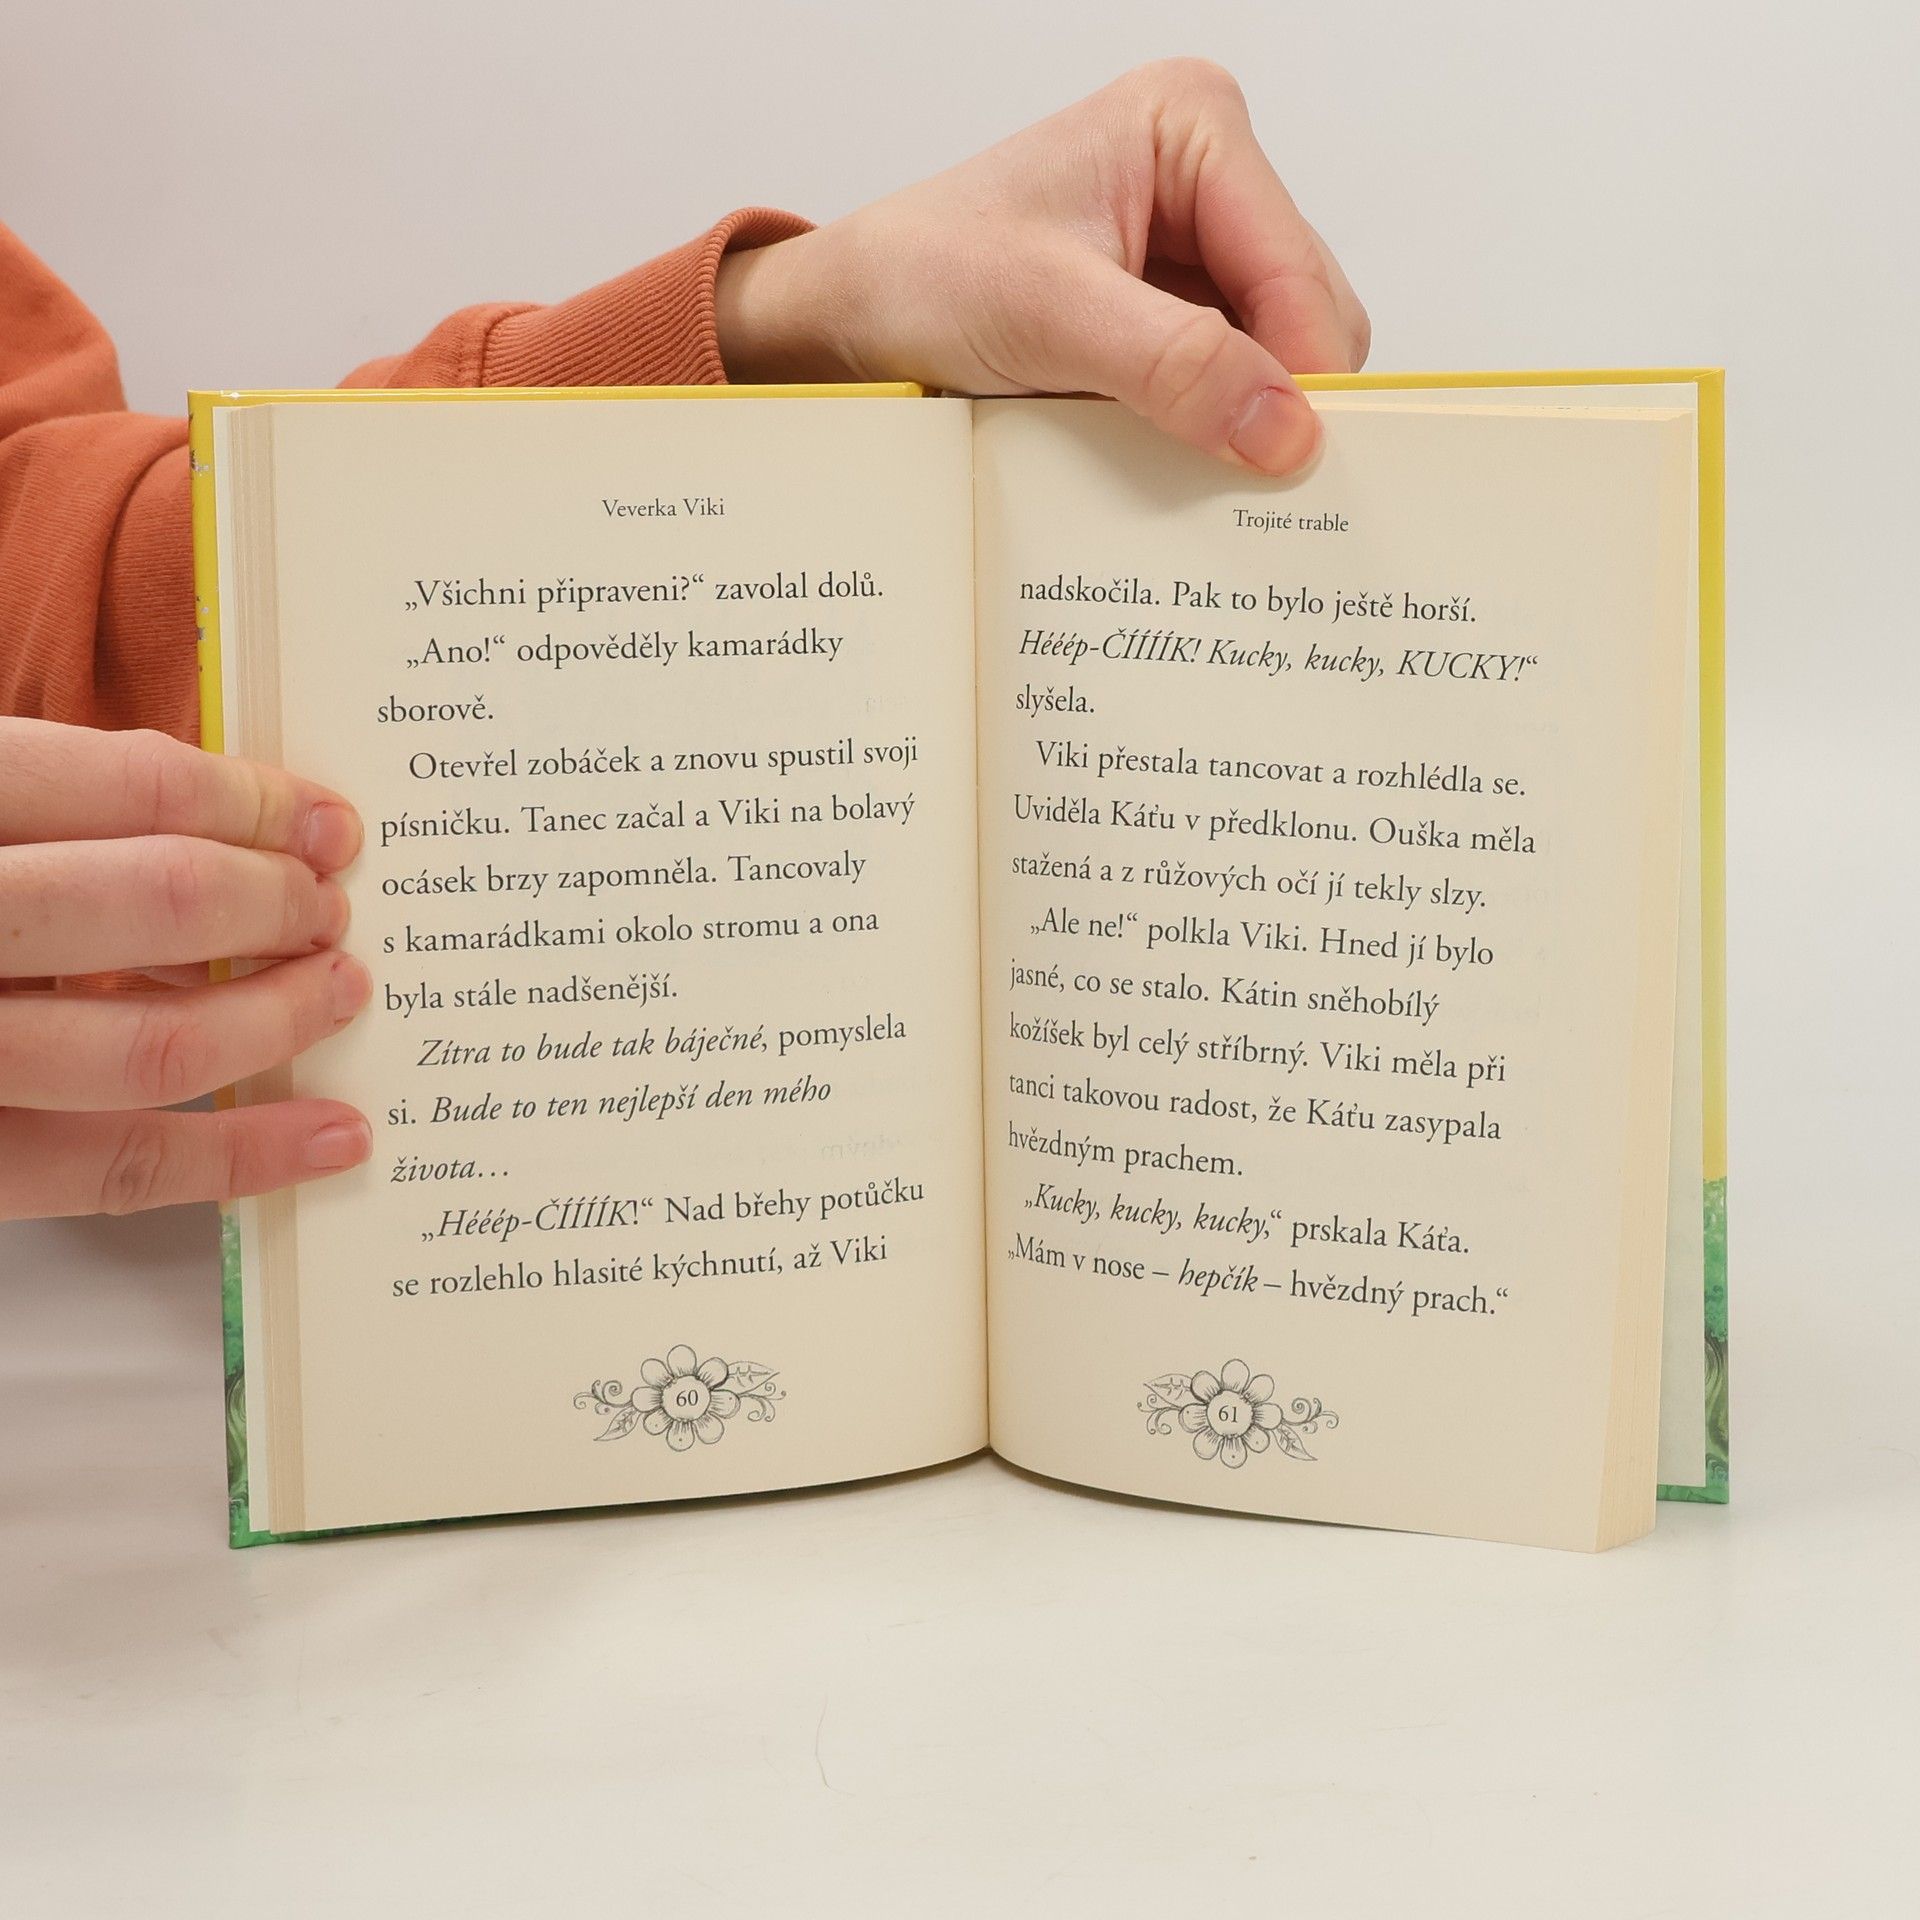 Veverka Viki
„Všichni připraveni?“ zavolal dolů.
„Ano!“ odpověděly kamarádky
sborově.
Otevřel zobáček a znovu spustil svoji
písničku. Tanec začal a Viki na bolavý
ocásek brzy zapomněla. Tancovaly
s kamarádkami okolo stromu a ona
byla stále nadšenější.
Zítra to bude tak báječné, pomyslela
si. Bude to ten nejlepší den mého
života…
„Hééép-ČÍÍÍÍK!“ Nad břehy potůčku
se rozlehlo hlasité kýchnutí, až Viki
60
Trojité trable
nadskočila. Pak to bylo ještě horší.
Hééép-ČÍÍÍÍK! Kucky, kucky, KUCKY!“
slyšela.
Viki přestala tancovat a rozhlédla se.
Uviděla Káťu v předklonu. Ouška měla
stažená a z růžových očí jí tekly slzy.
„Ale ne!“ polkla Viki. Hned jí bylo
jasné, co se stalo. Kátin sněhobílý
kožíšek byl celý stříbrný. Viki měla při
tanci takovou radost, že Káťu zasypala
hvězdným prachem.
„Kucky, kucky, kucky,“ prskala Káťa.
„Mám v nose – hepčík – hvězdný prach.“
61